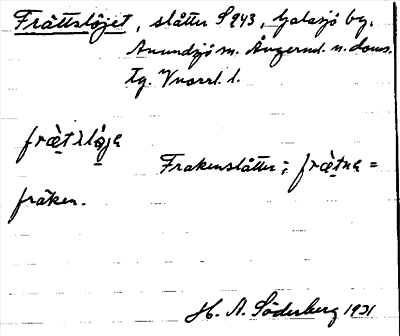 Frättslöjet, slåtter S 943, Galasjö by,
Anundsjö sn. Ångerml. n. doms.
tg. Vnorrl. l.
frätslöje
Frakenslåtter; frätne =
fräken.
H. A. Söderberg 1931